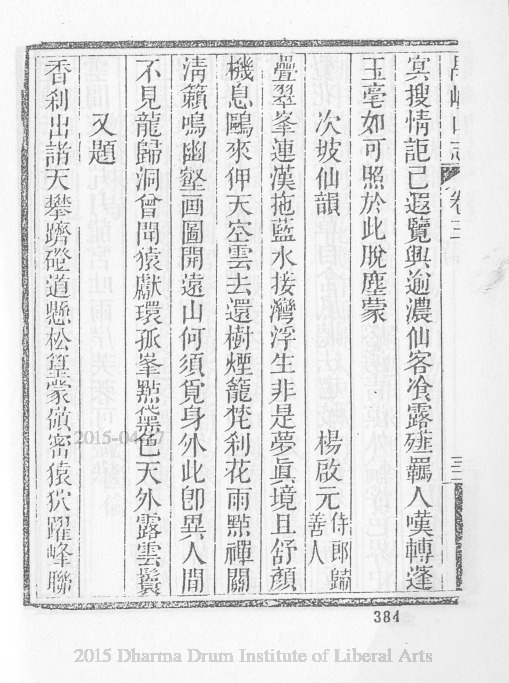 禺峽山志 卷三 三
冥搜情詎已遐覽興逾濃仙客飡露羇人嘆轉蓬
玉毫如可照於此脫塵蒙
次坡仙韻 楊啟元侍郎歸善人
疊翠峯連漢拖藍水接灣浮生非是夢眞境且舒顏
機息鷗來狎天空雲去還樹煙籠梵刹花雨㸃禪關
淸籟鳴幽壑画圖開遠山何須覓身外此卽異人間
不見龍歸洞曾聞猿獻環孤峯㸃黛色天外露雲鬟
又題
香刹出諸天攀躋磴道懸松篁蒙嶺密猿狖躍峰聯
2015-04-
384
2015 Dharma Drum Institute of Liberal Arts